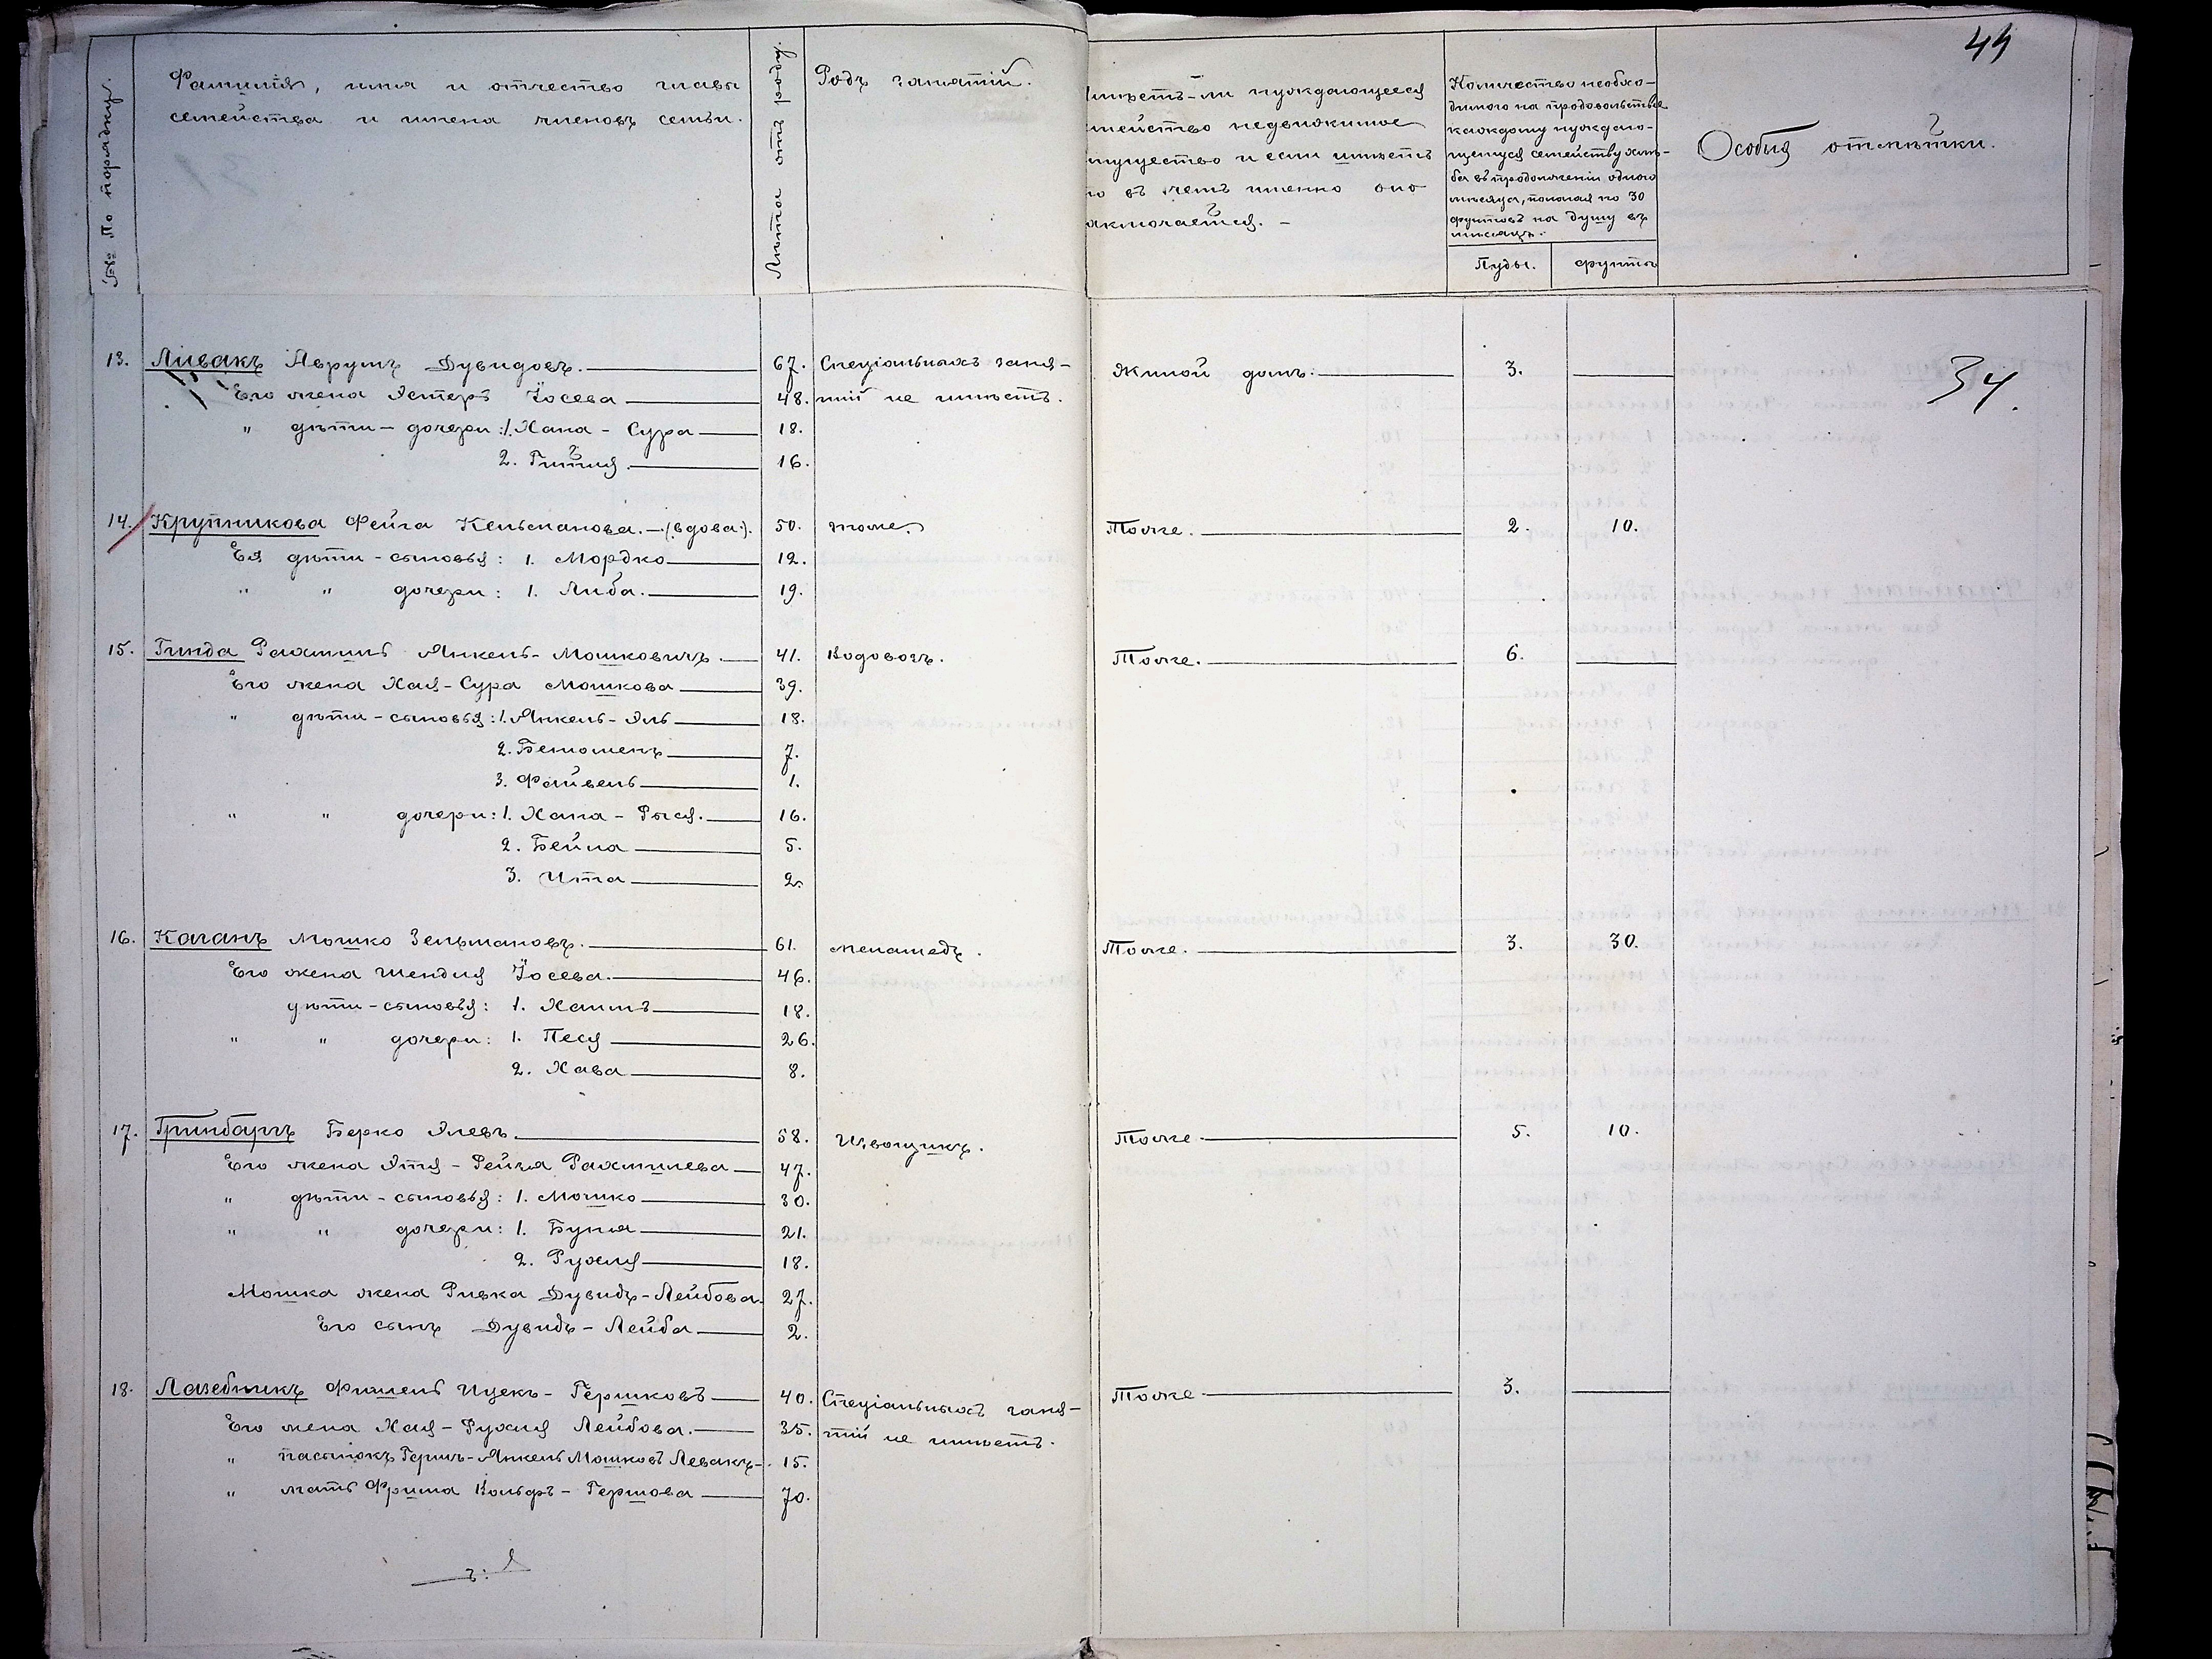 44
№№ По порядку.
Фамилія, имя и отчество главы
семейства и имена членовъ семьи.
Лѣта отъ роду.
Родъ занятій.
Имѣетъ-ли нуждающееся
семейство недвижимое
имущество и если имѣетъ
то въ чемъ именно оно
заключается. –
Количество необхо-
димого на продовольствіе
каждому нуждаю-
щемуся семейству хлѣ-
ба въ продолженіи одного
мѣсяца, полагая по 30
фунтовъ на душу въ
мѣсяцъ.
Пуды. фунты
Особыя отмѣтки.
34.
13. Ливакъ Аврумъ Дувидовъ. 67. Спеціальныхъ заня- Жилой домъ. 3.
Его жена Эстеръ Іосева 48. тій не имѣетъ.
" дѣти – дочери: 1. Хана – Сура 18.
2. Гитля. 16.
14. Крупникова Фейга Кельманова. – (вдова). 50. тоже Тоже. 2. 10.
Ея дѣти – сыновья: 1. Мордко 12.
" " дочери: 1. Либа. 19.
15. Гинда Рахмиль Янкель-Мошковичъ. 41. Водовозъ. Тоже. 6.
Его жена Хая-Сура Мошкова 39.
" дѣти – сыновья: 1. Янкель-Эль 18.
2. Беньоменъ 7.
3. Файвель 1.
" " дочери: 1. Хана – Рыся. 16.
2. Бейла 5.
3. Ита 2.
16. Каганъ Мошко Зельмановъ. 61. меламедъ. Тоже. 3. 30.
Его жена Шендля Іосева. 46.
дѣти – сыновья: 1. Хаимъ 18.
" " дочери: 1. Песя 26.
2. Хава 8.
17. Гринбаргъ Берко Элевъ 58. Извощикъ. Тоже 5. 10.
Его жена Этя – Рейза Рахмилева 47.
" дѣти – сыновья: 1. Мошко 30.
" " дочери: 1. Буня 21.
2. Рухля 18.
Мошка жена Ривка Дувидъ-Лейбова. 27.
Его сынъ Дувидъ – Лейба 2.
18. Лазебникъ Фишель Ицекъ – Гершковъ 40. Спеціальныхъ заня- Тоже 3.
Его жена Хая – Рухля Лейбова. 35. тій не имѣетъ.
" пасынокъ Гершъ-Янкель Мошковъ Левакъ 15.
" мать Фрима Вольфъ – Гершова 70.